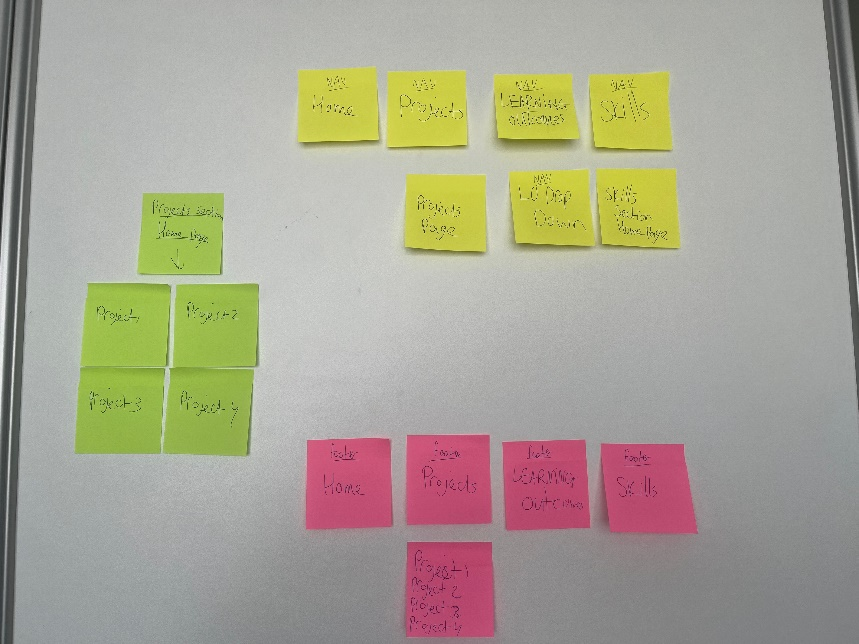 NAV
Home
NAV
Projects
NAV
LEARNING
outcomes
NAV
Skills
Projects
Page
NAV
LO Drop
Down
Skills
Section
Home Page
Projects
Home Page
Project 1
Project 2
Project 3
Project 4
footer
Home
footer
Projects
footer
LEARNING
outcomes
footer
Skills
Project 1
Project 2
Project 3
Project 4